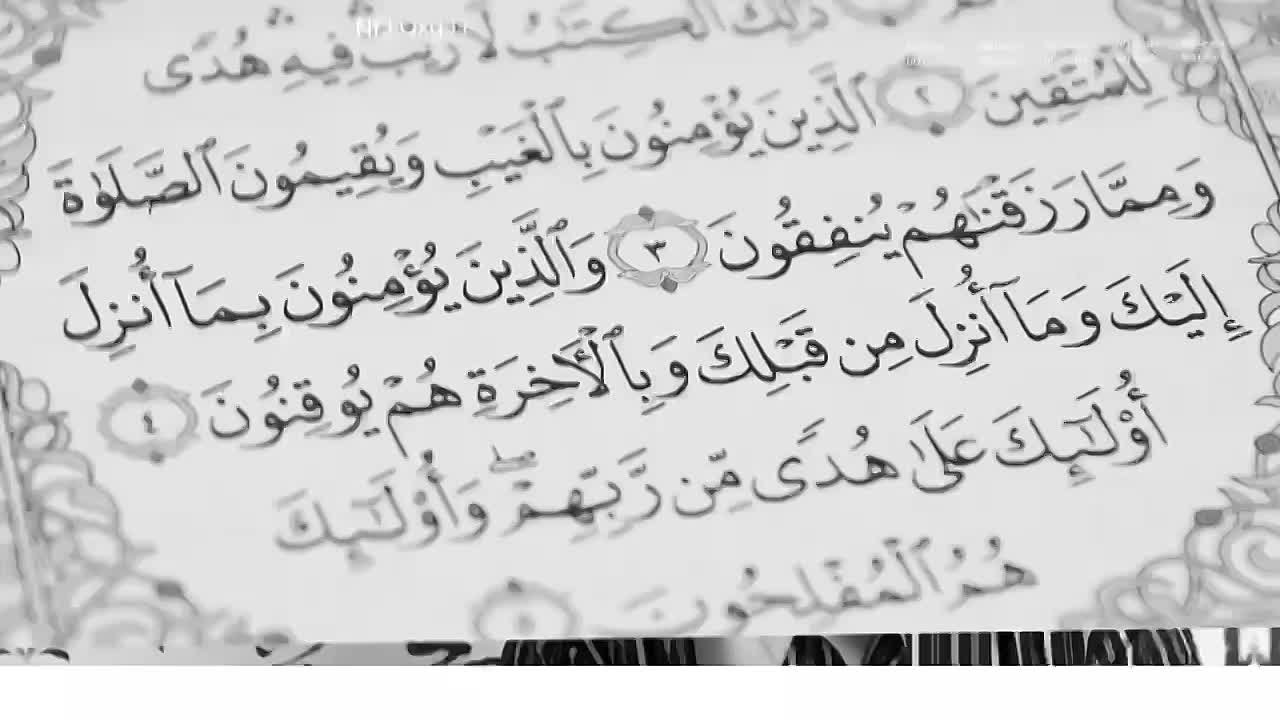 ذَٰلِكَ ٱلْكِتَٰبُ لَا رَيْبَ فِيهِ هُدًى
لِّلْمُتَّقِينَ ٢ ٱلَّذِينَ يُؤْمِنُونَ بِٱلْغَيْبِ وَيُقِيمُونَ ٱلصَّلَوٰةَ
وَمِمَّا رَزَقْنَٰهُمْ يُنفِقُونَ ٣ وَٱلَّذِينَ يُؤْمِنُونَ بِمَآ أُنزِلَ
إِلَيْكَ وَمَآ أُنزِلَ مِن قَبْلِكَ وَبِٱلْأَخِرَةِ هُمْ يُوقِنُونَ ٤
أُو۟لَٰٓئِكَ عَلَىٰ هُدًى مِّن رَّبِّهِمْ ۖ وَأُو۟لَٰٓئِكَ
هُمُ ٱلْمُفْلِحُونَ ٥